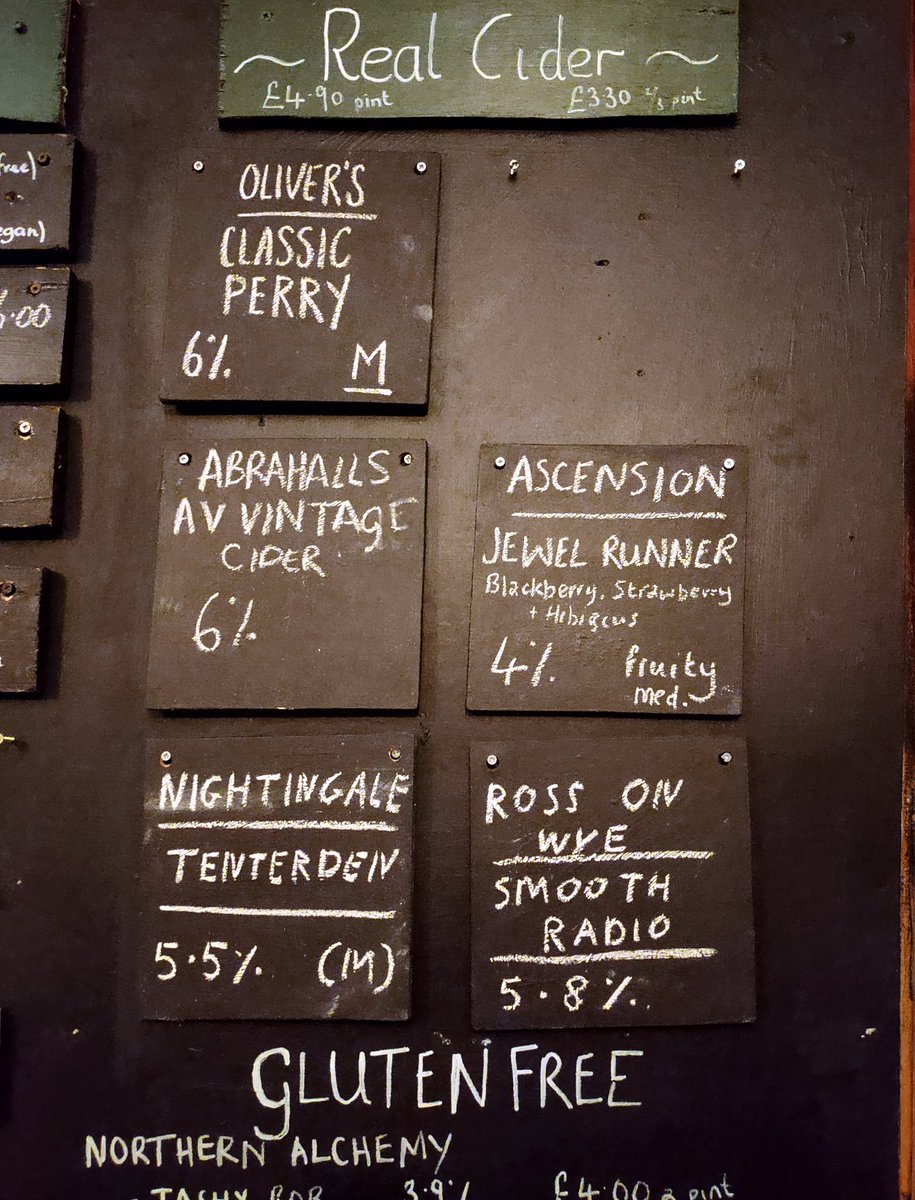 ~ Real Cider ~
£4.90 pint £3.30 2/3 pint
free)
egan)
.00
OLIVER'S
CLASSIC
PERRY
6% M
ABRAHALLS
AV VINTAGE
CIDER
6%
ASCENSION
JEWEL RUNNER
Blackberry, Strawberry
+ Hibiscus
4% fruity
med.
NIGHTINGALE
TENTERDEN
5.5% (M)
ROSS ON
WYE
SMOOTH
RADIO
5.8%
GLUTEN FREE
NORTHERN ALCHEMY
3.9% £4.00 a pint